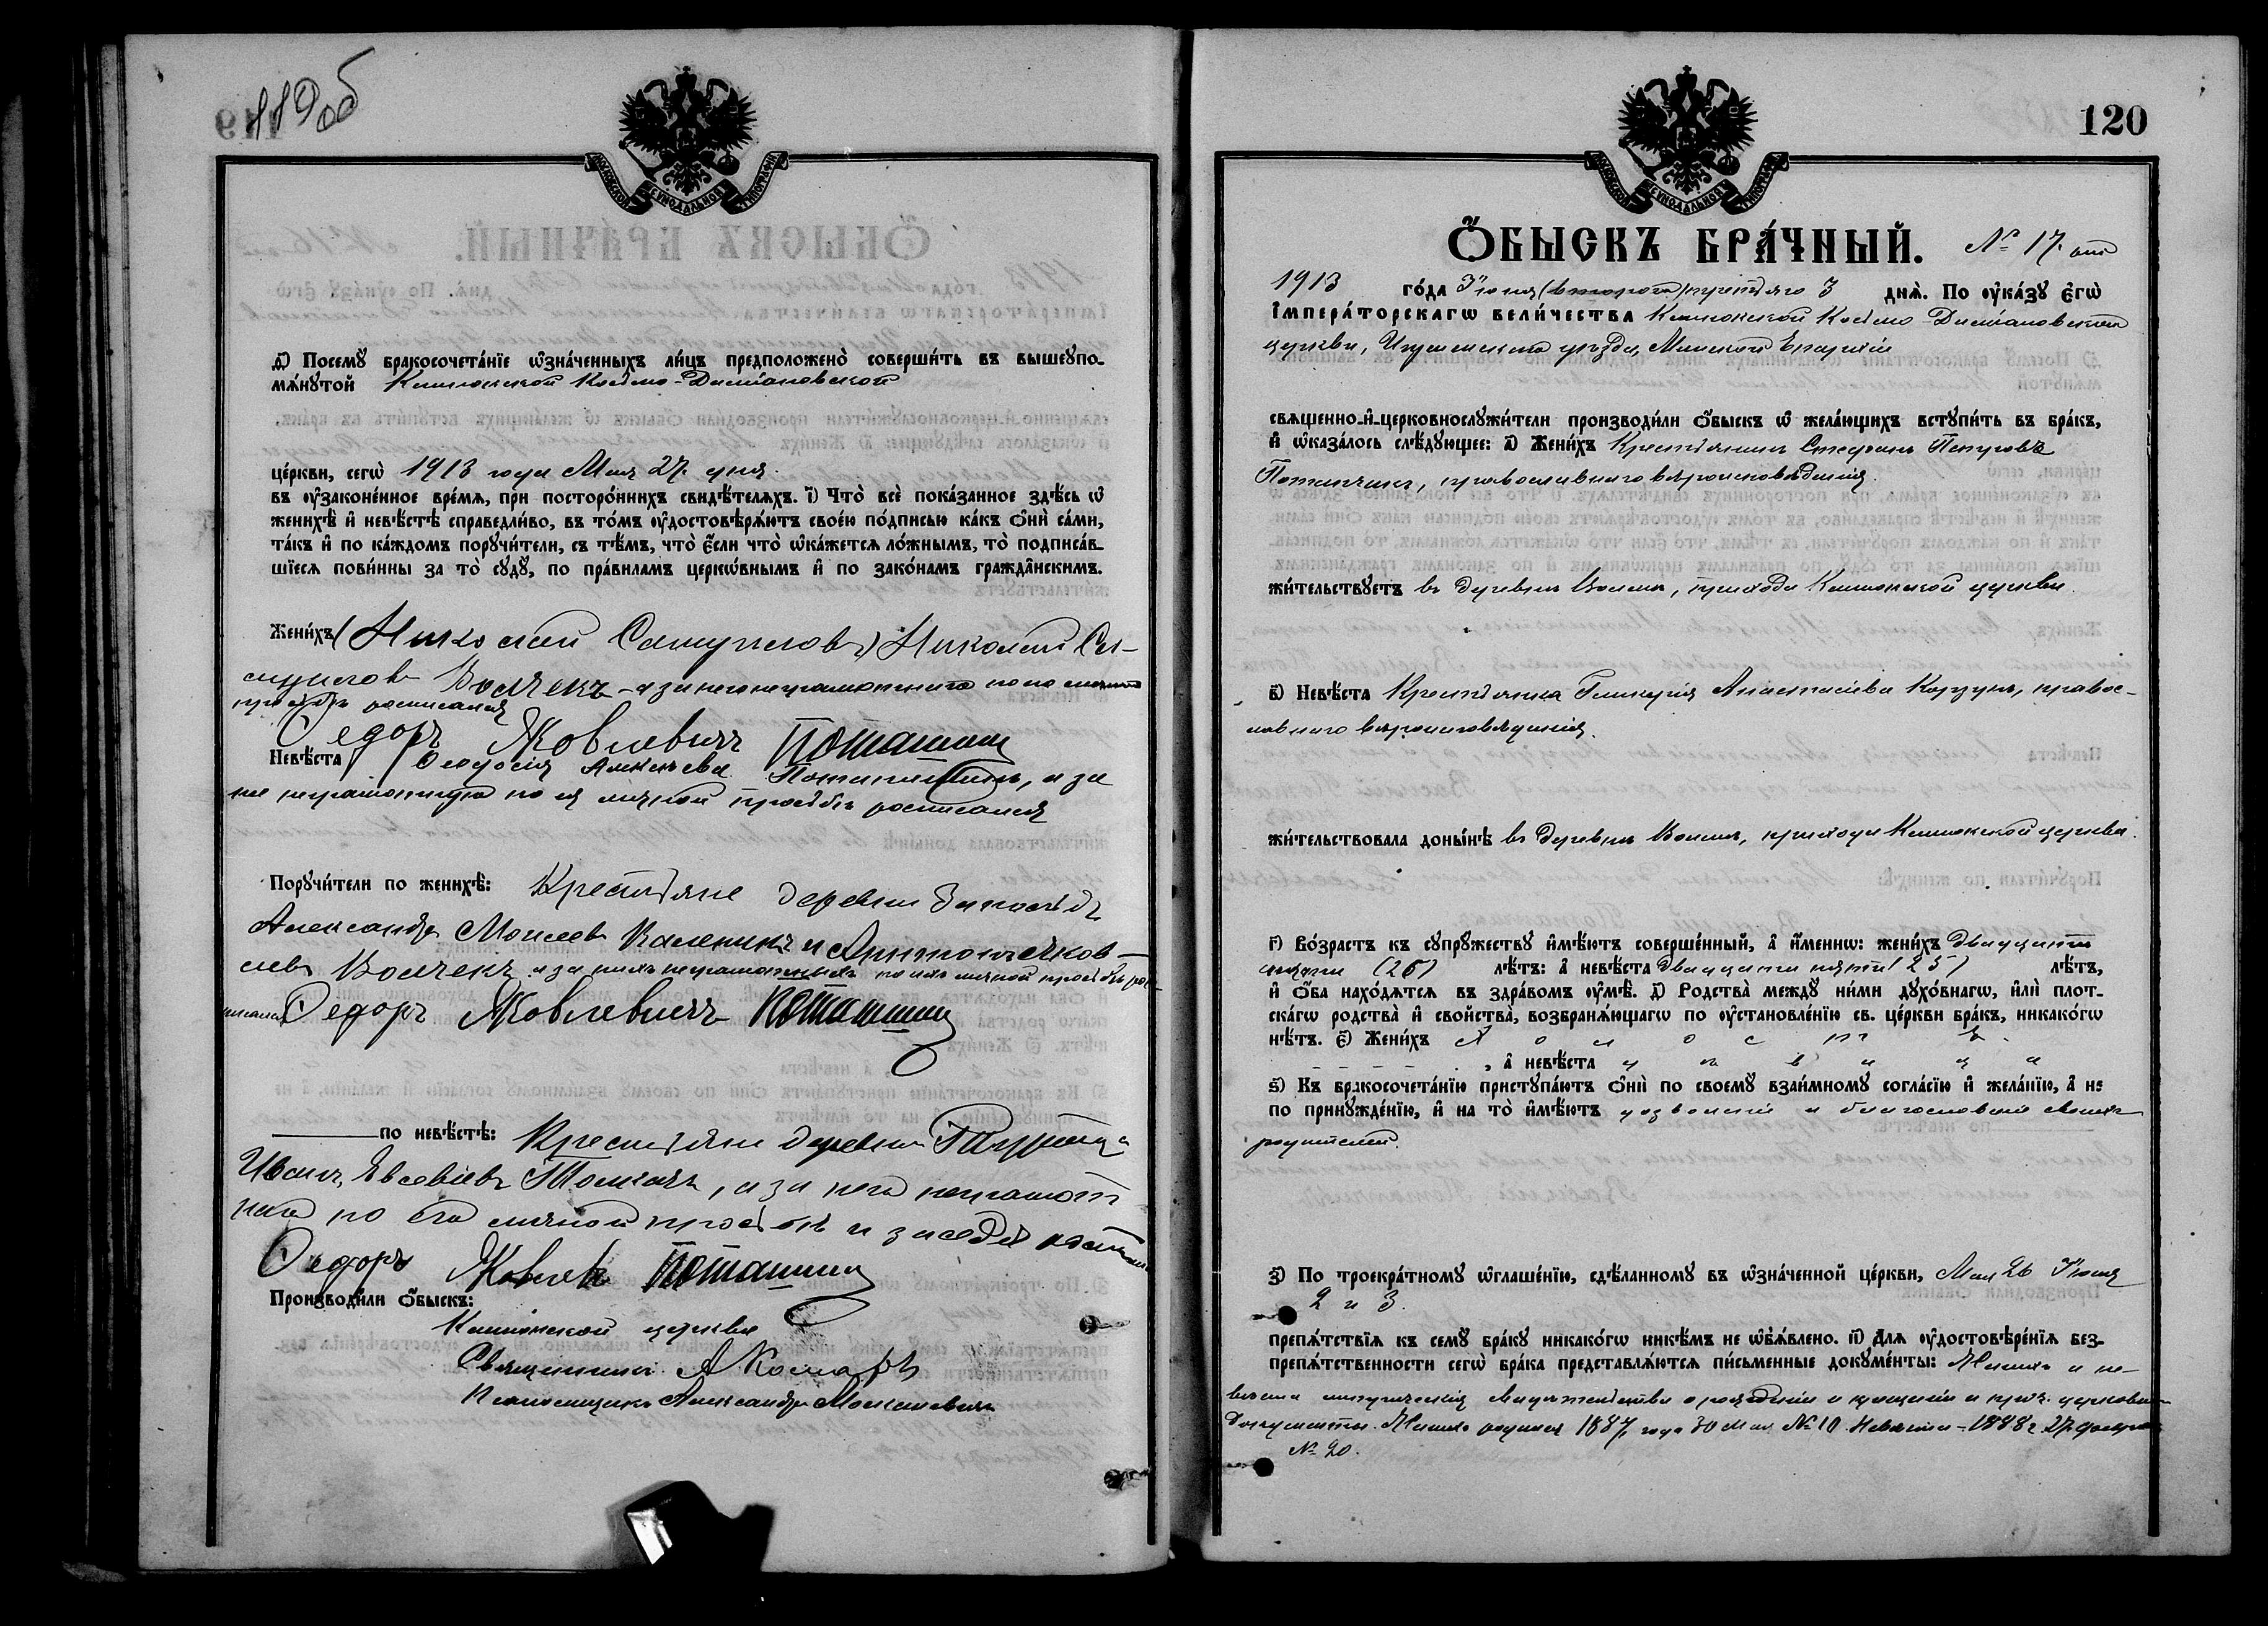 119 об
МОСКОВСКОЙ СѴНОДАЛЬНОЙ ТИПОГРАФІИ
д҃) Посемꙋ̀ бракосочета́нїе ѡ҆зна́ченныхъ ли́цъ предположено̀ соверши́ть въ вышеꙋпо-
мѧ́нꙋтой Клинокской Космо-Даміановской
це́ркви, сегѡ̀ 1913 года Мая 27. дня.
въ ᲂу҆зако́ненное вре́мѧ, при посторо́ннихъ свидѣ́телѧхъ. і҃) Что̀ всѐ пока́занное здѣ́сь ѡ҆
женихѣ̀ и҆ невѣ́стѣ справедли́во, въ то́мъ ᲂу҆достовѣрѧ́ютъ свое́ю по́дписью ка́къ ѻ҆нѝ са́ми,
та́къ и҆ по ка́ждомъ порꙋчи́тели, съ тѣ́мъ, что̀ є҆́сли что̀ ѡ҆ка́жетсѧ ло́жнымъ, то̀ подписа́в-
шїесѧ пови́нны за то̀ сꙋдꙋ̀, по пра́виламъ церкѡ́внымъ и҆ по зако́намъ гражда́нскимъ.
Жени́хъ (Николай Самуилов) Николай Са-
муилов Волчекъ - а за него неграмотнаго по его личной
просьбѣ росписался
Ѳедоръ Яковлевичъ Поташникъ
Невѣ́ста Ѳеодосія Алексѣева, а за
нее неграмотную по ея личной просьбѣ росписался
Порꙋчи́тели по женихѣ̀: Крестьяне деревни
Александръ Моисеев Каленикъ и Антонъ Яков-
лев Волчекъ а за нихъ неграмотныхъ по ихъ личной просьбѣ рос-
писался Ѳедоръ Яковлевичъ Поташникъ
по невѣ́стѣ: Крестьяне деревни
Иванъ Евсевіевъ, а за него неграмот
наго по его личной просьбѣ и за себя
Ѳедоръ Яковлев Поташникъ
Производи́ли ѻ҆́быскъ:
Клинокской церкви
Священникъ А Комаръ
Псаломщикъ Александръ
120
МОСКОВСКОЙ СѴНОДАЛЬНОЙ ТИПОГРАФІИ
Ѻ҆́БЫСКЪ БРА́ЧНЫЙ. № 17. от
1913 го́да Іюня (второго) третьяго 3 днѧ̀. По ᲂу҆ка́зꙋ Є҆гѡ̀
І҆мпера́торскагѡ вели́чества Клинокской Космо-Даміановской
церкви, Игуменскаго уѣзда, Минской Епархіи
свѧще́нно-и҆-церковнослꙋжи́тели производи́ли ѻ҆́быскъ ѡ҆ жела́ющихъ встꙋпи́ть въ бра́къ,
и҆ ѡ҆каза́лось слѣ́дꙋющее: а҃) Жени́хъ Крестьянинъ Стефанъ Петровъ
православнаго вѣроисповѣданія.
жи́тельствꙋетъ въ деревнѣ, прихода Клинокской церкви.
в҃) Невѣ́ста Крестьянка Гликерія Анастасіева Корзунъ, правос-
лавнаго вѣроисповѣданія.
жи́тельствовала доны́нѣ въ деревнѣ, прихода Клинокской церкви.
г҃) Во́зрастъ къ сꙋпрꙋ́жествꙋ и҆мѣ́ютъ соверше́нный, а҆ и҆́меннѡ: жени́хъ двадцати
(26) лѣ́тъ: а҆ невѣ́ста двадцати пяти (25) лѣ́тъ,
и҆ ѻ҆́ба нахо́дѧтсѧ въ здра́вомъ ᲂу҆мѣ̀. д҃) Родства̀ междꙋ̀ ни́ми дꙋхо́внагѡ, и҆лѝ плот-
ска́гѡ родства̀ и҆ сво́йства, возбранѧ́ющагѡ по ᲂу҆становле́нїю св. це́ркви бра́къ, никако́гѡ
нѣ́тъ. є҃) Жени́хъ х о л о с т ъ
, а҆ невѣ́ста д ѣ в и ц а
ѕ҃) Къ бракосочета́нїю пристꙋпа́ютъ ѻ҆нѝ по своемꙋ̀ взаи́мномꙋ согла́сїю и҆ жела́нїю, а҆ не
по принꙋжде́нїю, и҆ на то̀ и҆мѣ́ютъ дозволеніе и благословеніе своихъ
родителей.
з҃) По троекра́тномꙋ ѡ҆глаше́нїю, сдѣ́ланномꙋ въ ѡ҆зна́ченной це́ркви, Мая 26 Іюня
2 и 3.
препѧ́тствїѧ къ семꙋ̀ бра́кꙋ никако́гѡ никѣ́мъ не ѡ҆б̾ѧ́влено. и҃) Длѧ ᲂу҆достовѣре́нїѧ без-
препѧ́тственности сегѡ̀ бра́ка представлѧ́ютсѧ пи́сьменные докꙋме́нты: Жениха и не-
вѣсты метрическія свидѣтельства о рожденіи и крещеніи и проч. церковные
документы. Женихъ родился 1887 года 30 Мая № 10 Невѣста - 1888 г. 27 февраля
№ 20.